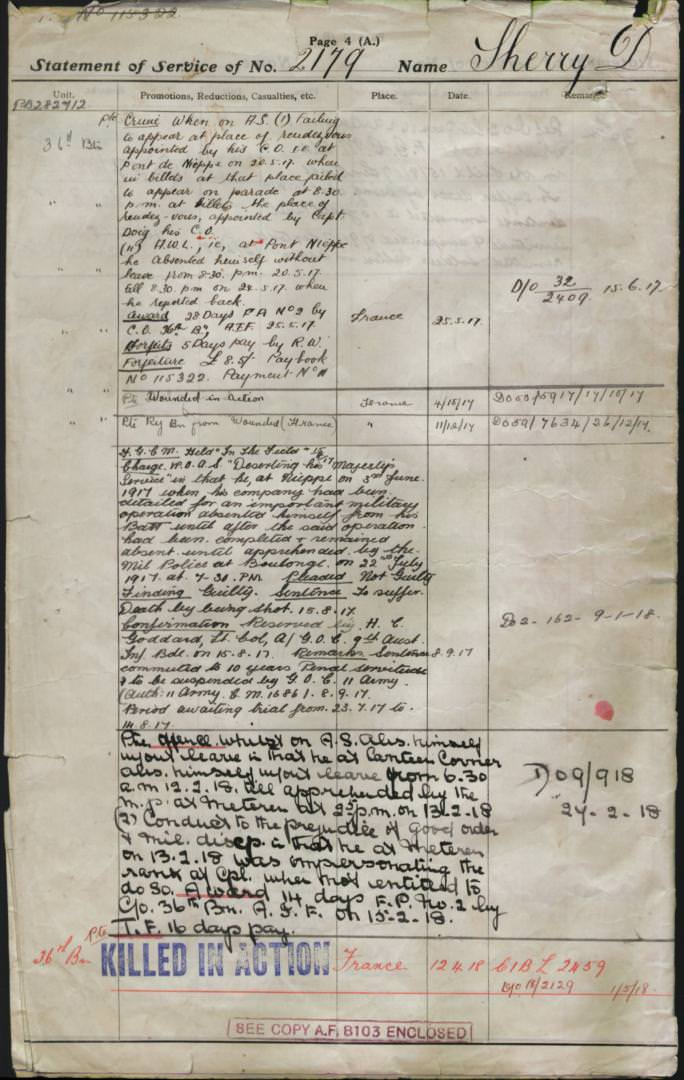 No 115322
Page 4 (A.)
Statement of Service of No. 2179 Name Sherry D
Unit. Promotions, Reductions, Casualties, etc. Place. Date. Remarks
36th Bn Pte Crime When on A.S. (1) Failing
to appear at place of rendezvous
appointed by his C.O. i.e. at
Pont de Nieppe on 20.5.17. when
in billets at that place failed
to appear on parade at 8.30.
p.m. at billets the place of
rendez-vous, appointed by Capt
Doig his C.O.
(11) A.W.L., ie, at Pont Nieppe
he absented himself without
leave from 8.30. p.m. 20.5.17.
till 8.30. pm on 24.5.17. when
he reported back.
Award 28 Days F.P. No 2 by
C.O. 36th Bn, A.I.F. 25.5.17. France 25.5.17. D/O 32/2409 15.6.17
Forfeits 5 Days pay by R.W.
Forfeiture £8.5/- Paybook
No 115322. Payment No 11
" " Pte Wounded in Action France 4/10/17 DO50/5917/17/10/17
" " Pte Rej Bn from Wounded (France) " 11/12/17 DO59/7634/26/12/17.
F.G.C.M. Held "In The Field"
Charge. W.O.A.S. "Deserting his Majesty's
Service" in that he, at Nieppe on 3rd June.
1917 when, his company had been
detailed for an important military
operation absented himself from his
Batt until after the said operation
had been completed & remained
absent until apprehended by the
Mil Police at Boulonge. on 22nd July
1917. at. 7-30. P.M. Pleaded Not Guilty
Finding Guilty. Sentence To suffer
Death by being shot. 15.8.17.
Confirmation Reserved by H. C.
Goddard, Lt. Col, A/G.O.C. 9th Aust.
Inf Bde. on 15.8.17. Remarks Sentence 8.9.17 Do2-162-9-1-18.
commuted to 10 years Penal servitude
& to be suspended by G.O.C. 11 Army.
(Auth: 11 Army. C.M. 1686/. 8.9.17.
Period awaiting trial from. 23.7.17 to.
14.8.17.
Pte Offence whilst on A.S. Abs. himself
w/out leave in that he at Canteen Corner
abs. himself w/out leave from 6.30
a.m 12.2.18. till apprehended by the
m.p. at Meteren at 2 p.m. on 13-2-18
(2) Conduct to the prejudice of good order
& Mil. discp. in that he at Meteren
on 13.2.18 was impersonating the
rank of Cpl. when not entitled to
do so. Award 14 days F.P. No.2 by
C/o. 36th Bn. A.I.F. on 15-2-18.
T.F. 16 days pay. DO9/918
24-2-18
36th Bn Pte KILLED IN ACTION France 12.4.18 C1BL 2459
DO18/2129 1/5/18.
SEE COPY A.F. B103 ENCLOSED